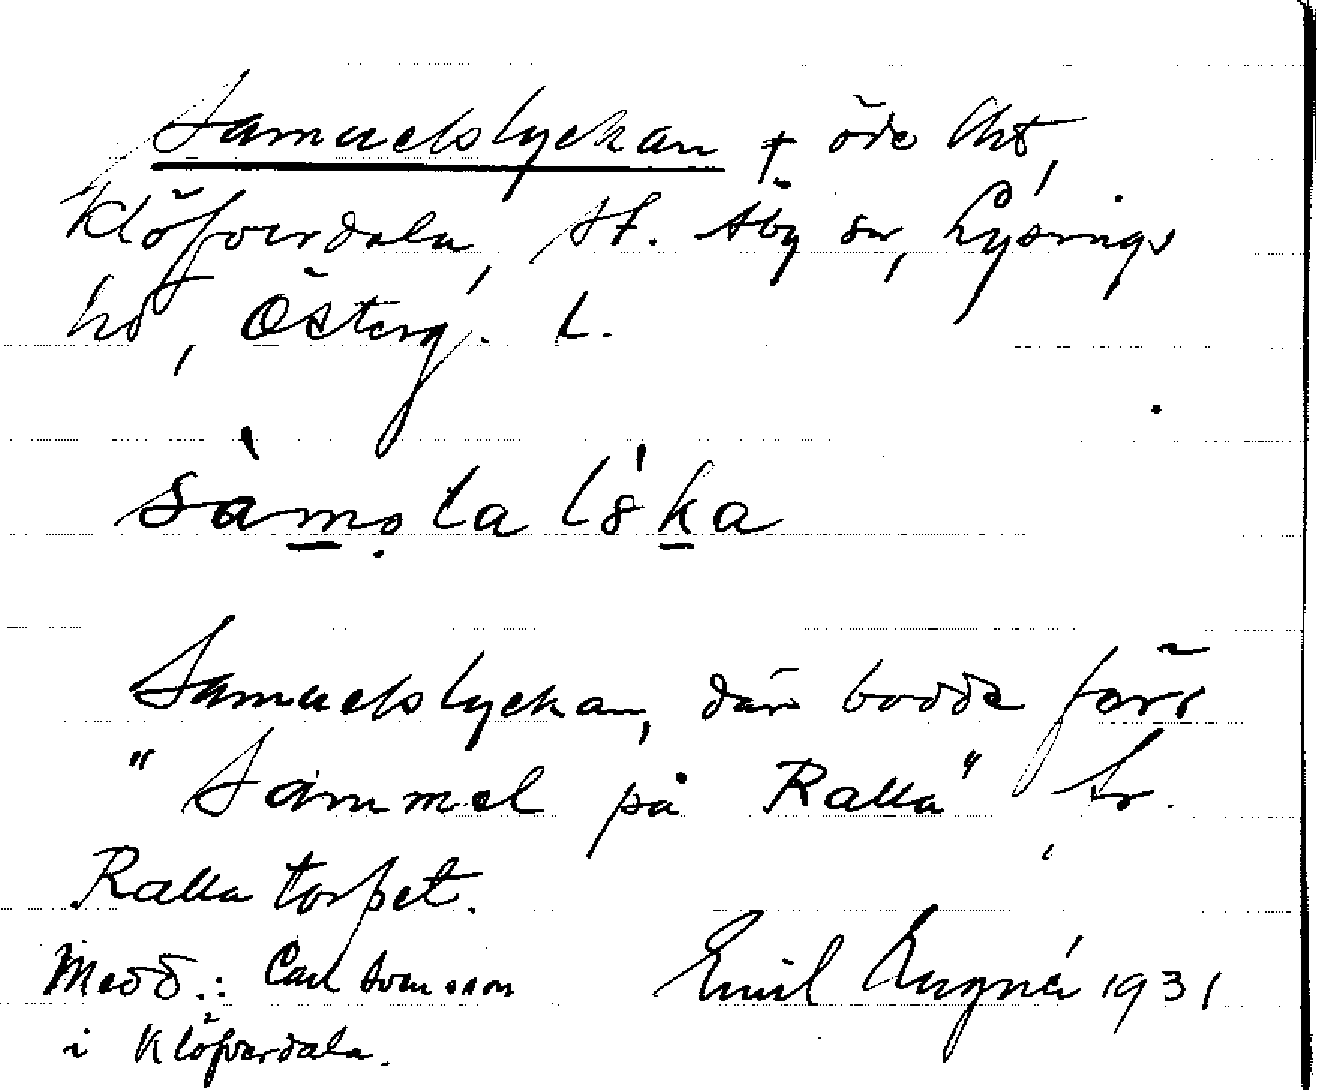 Samuelslyckan † öde lht,
Klöfverdala, St. Åby sn, Lysings
hd, Österg. L.
sàmo̤la lỳka
Samuelslyckan, där bodde förr
"Sammel på Ralla" av
Ralla torpet.
Medd.: Carl Svensson
i Klöfverdala.
Emil 1931